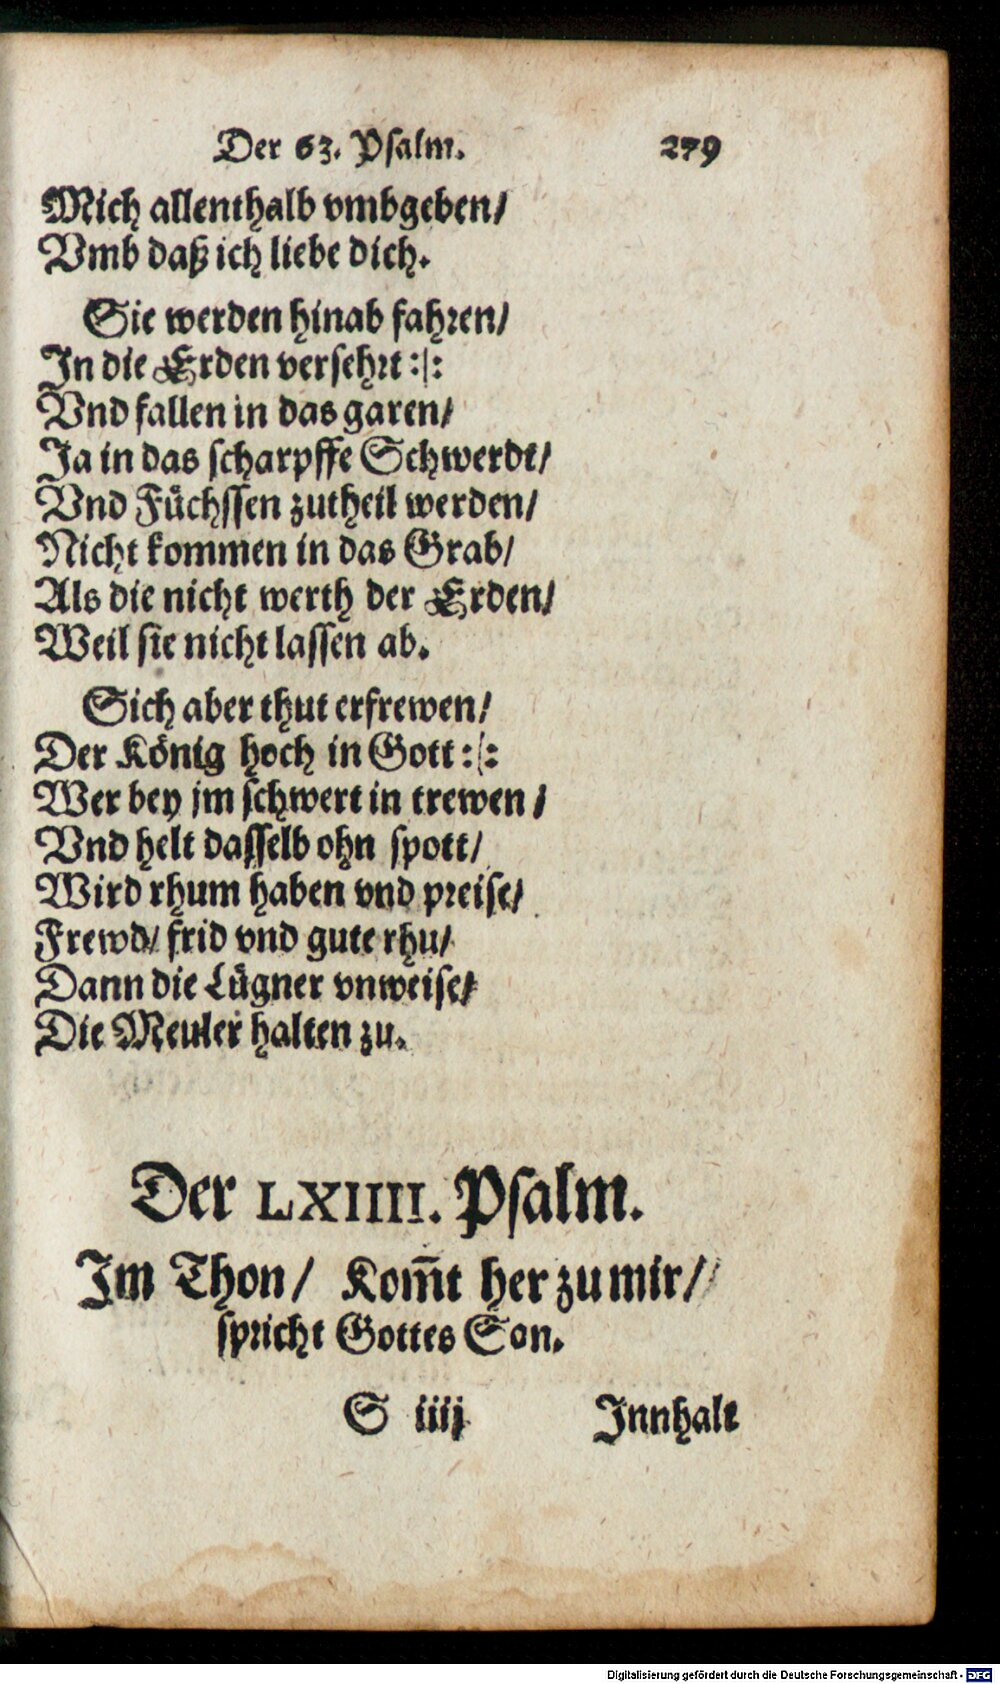 Der 63. Psalm. 279
Mich allenthalb vmbgeben/
Vmb daß ich liebe dich.
Sie werden hinab fahren/
In die Erden versehrt :|:
Vnd fallen in das garen/
Ja in das scharpffe Schwerdt/
Vnd Füchssen zutheil werden/
Nicht kommen in das Grab/
Als die nicht werth der Erden/
Weil sie nicht lassen ab.
Sich aber thut erfrewen/
Der König hoch in Gott :|:
Wer bey jm schwert in trewen/
Vnd helt dasselb ohn spott/
Wird rhum haben vnd preise/
Frewd/ frid vnd gute rhu/
Dann die Lügner vnweise/
Die Meuler halten zu.
Der LXIIII. Psalm.
Im Thon/ Kom̃t her zu mir/
spricht Gottes Son.
S iiij Innhalt
Digitalisierung gefördert durch die Deutsche Forschungsgemeinschaft - DFG